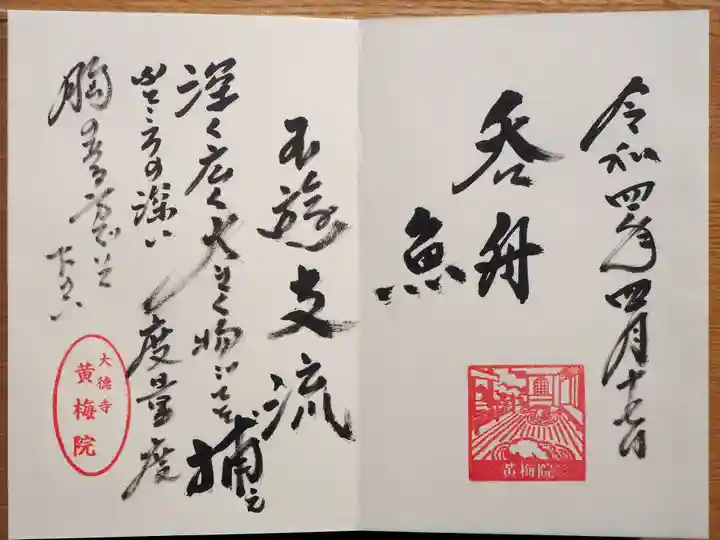 令和四年四月十七日
呑舟
魚
黄梅院
不遊支流
深く広く大きく物事を捕え
ふところの深い
度量
胸
大徳寺
黄梅院